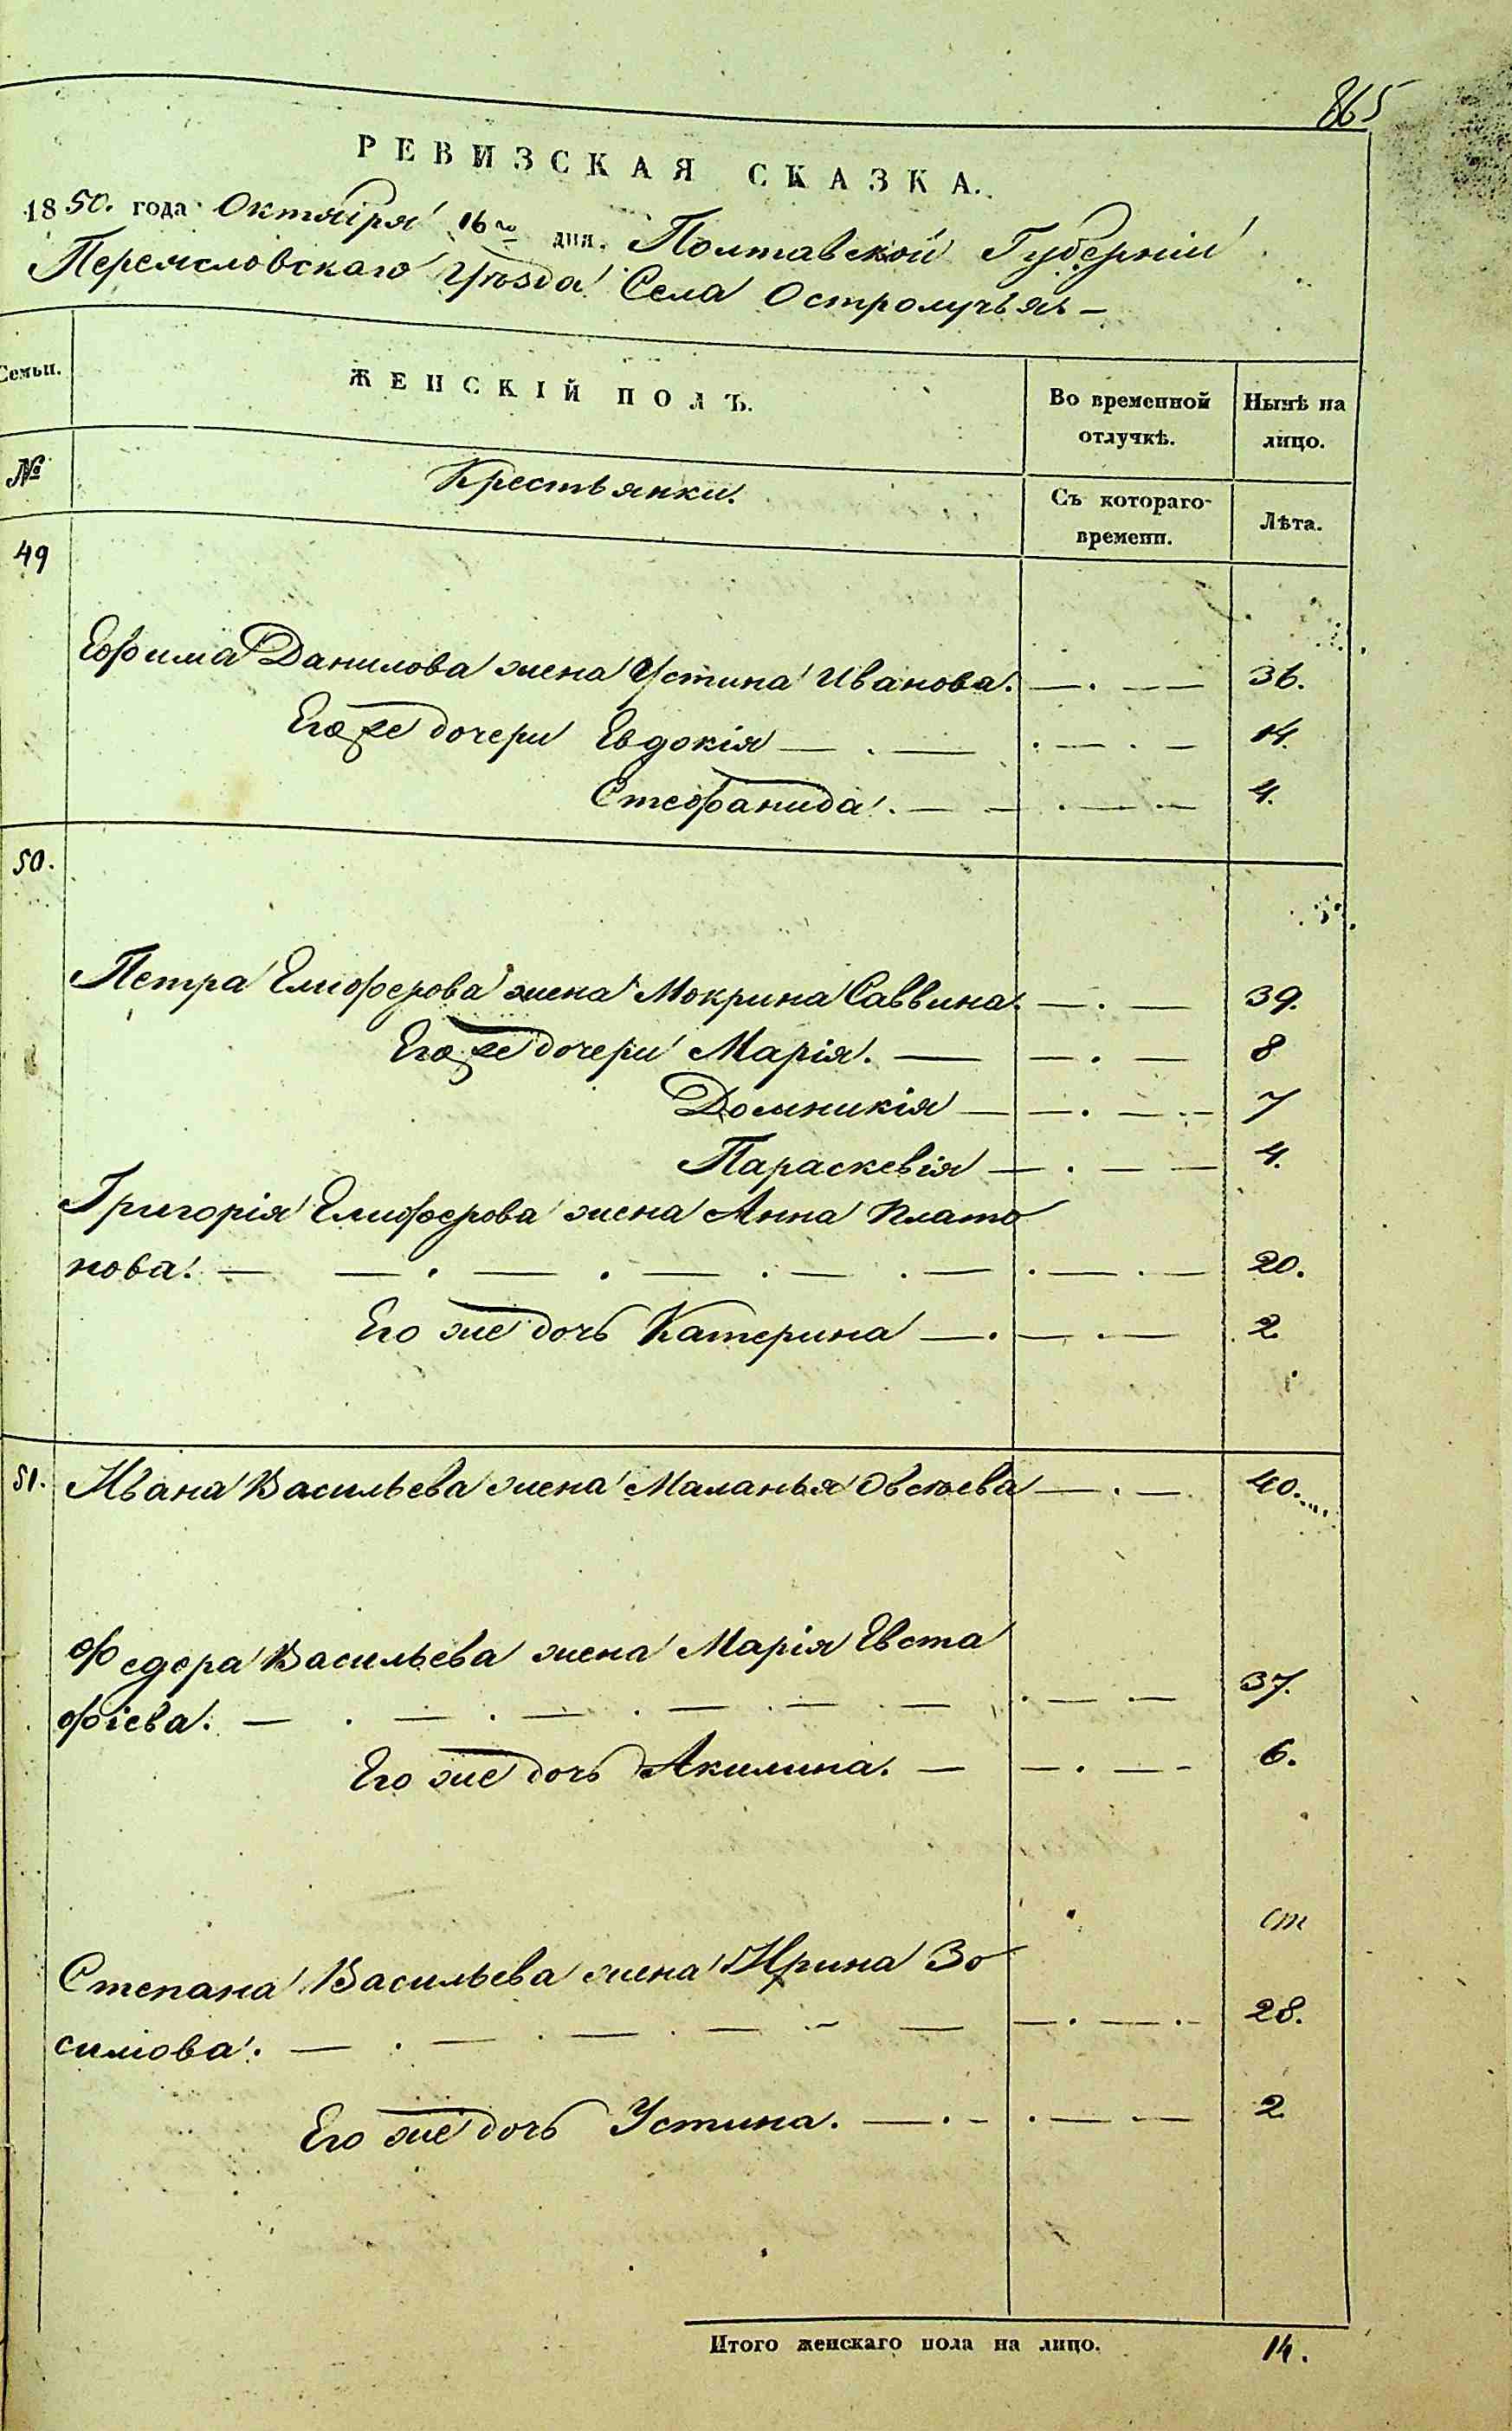 865
РЕВИЗСКАЯ СКАЗКА.
1850. года Октября 16го дня. Полтавской Губерніи
Переясловскаго Уѣзда Села Остролучья —
Семьи.
ЖЕНСКІЙ ПОЛЪ.
Во временной отлучкѣ.
Нынѣ на лицо.
№
Крестьянки.
Съ котораго времени.
Лѣта.
49
Ефима Данилова жена Устина Иванова. — . — — 36.
Его же дочери Евдокія — . — . — . — 14.
Стефанида. — — . — — 4.
50.
Петра Елиферова жена Мокрина Саввина. — . — 39.
Его же дочери Марія. — — . — 8
Домникія — — . — . — 7
Параскевія — . — — 4.
Григорія Елиферова жена Анна Плато
нова. — — . — . — . — . — . — . — 20.
Его же дочь Катерина — . — . — 2
51. Ивана Васильева жена Маланья Овсѣева — . — 40.
Федора Васильева жена Марія Евста
фіева. — . — . — . — . — . — . — — 37.
Его же дочь Акилина. — — . — - 6.
ст
Степана Васильева жена Ирина Зо
симова. — . — . — . — - — — . — . - 28.
Его же дочь Устина. — . - . — . — 2
Итого женскаго пола на лицо. 14.